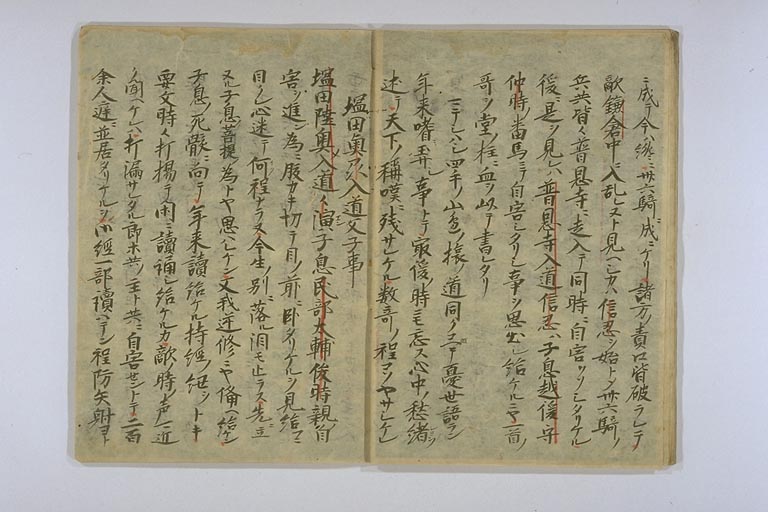 ニ成テ今ハ纔ニ廿六騎ニ成ニケリ諸方ノ責口皆破ラレテ
敵鎌倉中ニ入乱レヌト見ヘシカハ信忍ヲ始トメ廿六騎ノ
兵共皆々普恩寺ニ走入テ同時ニ自害ヲソシタリケル
後ニ是ヲ見レハ普恩寺入道信忍ハ子息越後守
仲時番馬ニテ自害シタリシ事ヲ思出シ給ケルニヤ一首ノ
哥ヲ堂ノ柱ニ血ヲ以テ書レタリ
マテシハシ四手ノ山邊ノ旅ノ道同ク越テ憂世語ラン
年来嗜弄ノ事トテ最後ノ時モ忘ス心中ノ愁緒ヲ
述テ天下ノ称嘆ニ残サレケル数奇ノ程コソヤサシケレ
塩田奥州入道父子事
塩田陸奥入道々演子息民部大輔俊時親ノ自
害ヲ進ン為ニ腹カキ切テ目ノ前ニ臥タリケルヲ見給フニ
目クレ心迷テ何程ナラヌ今生ノ別ニ落ル泪モ止ラス先立
ヌル子息ノ菩提ノ為トヤ思ハレケン又我逆修ニヤ備ヘ給ケン
子息ノ死骸ニ向テ年来讀給ケル持經ノ紐ヲトキ
要文時々打揚テ閑ニ讀誦シ給ケルカ敵ノ時ノ声ノ近
ク聞ヘケレハ打漏サレタル郎等共ノ主ト共ニ自害セントテ二百
余人庭ニ並居タリケルヲ此經一部讀ハテン程防矢射ヨト